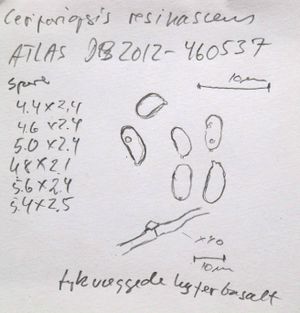 Ceriporiopsis resinascens
ATLAS DB2012-460537
spore
10µm
4.4x2.4
4.6x2.4
5.0x2.4
4.8x2.1
5.6x2.4
5.4x2.5
x40
10µm
tykvæggede hyfer basalt